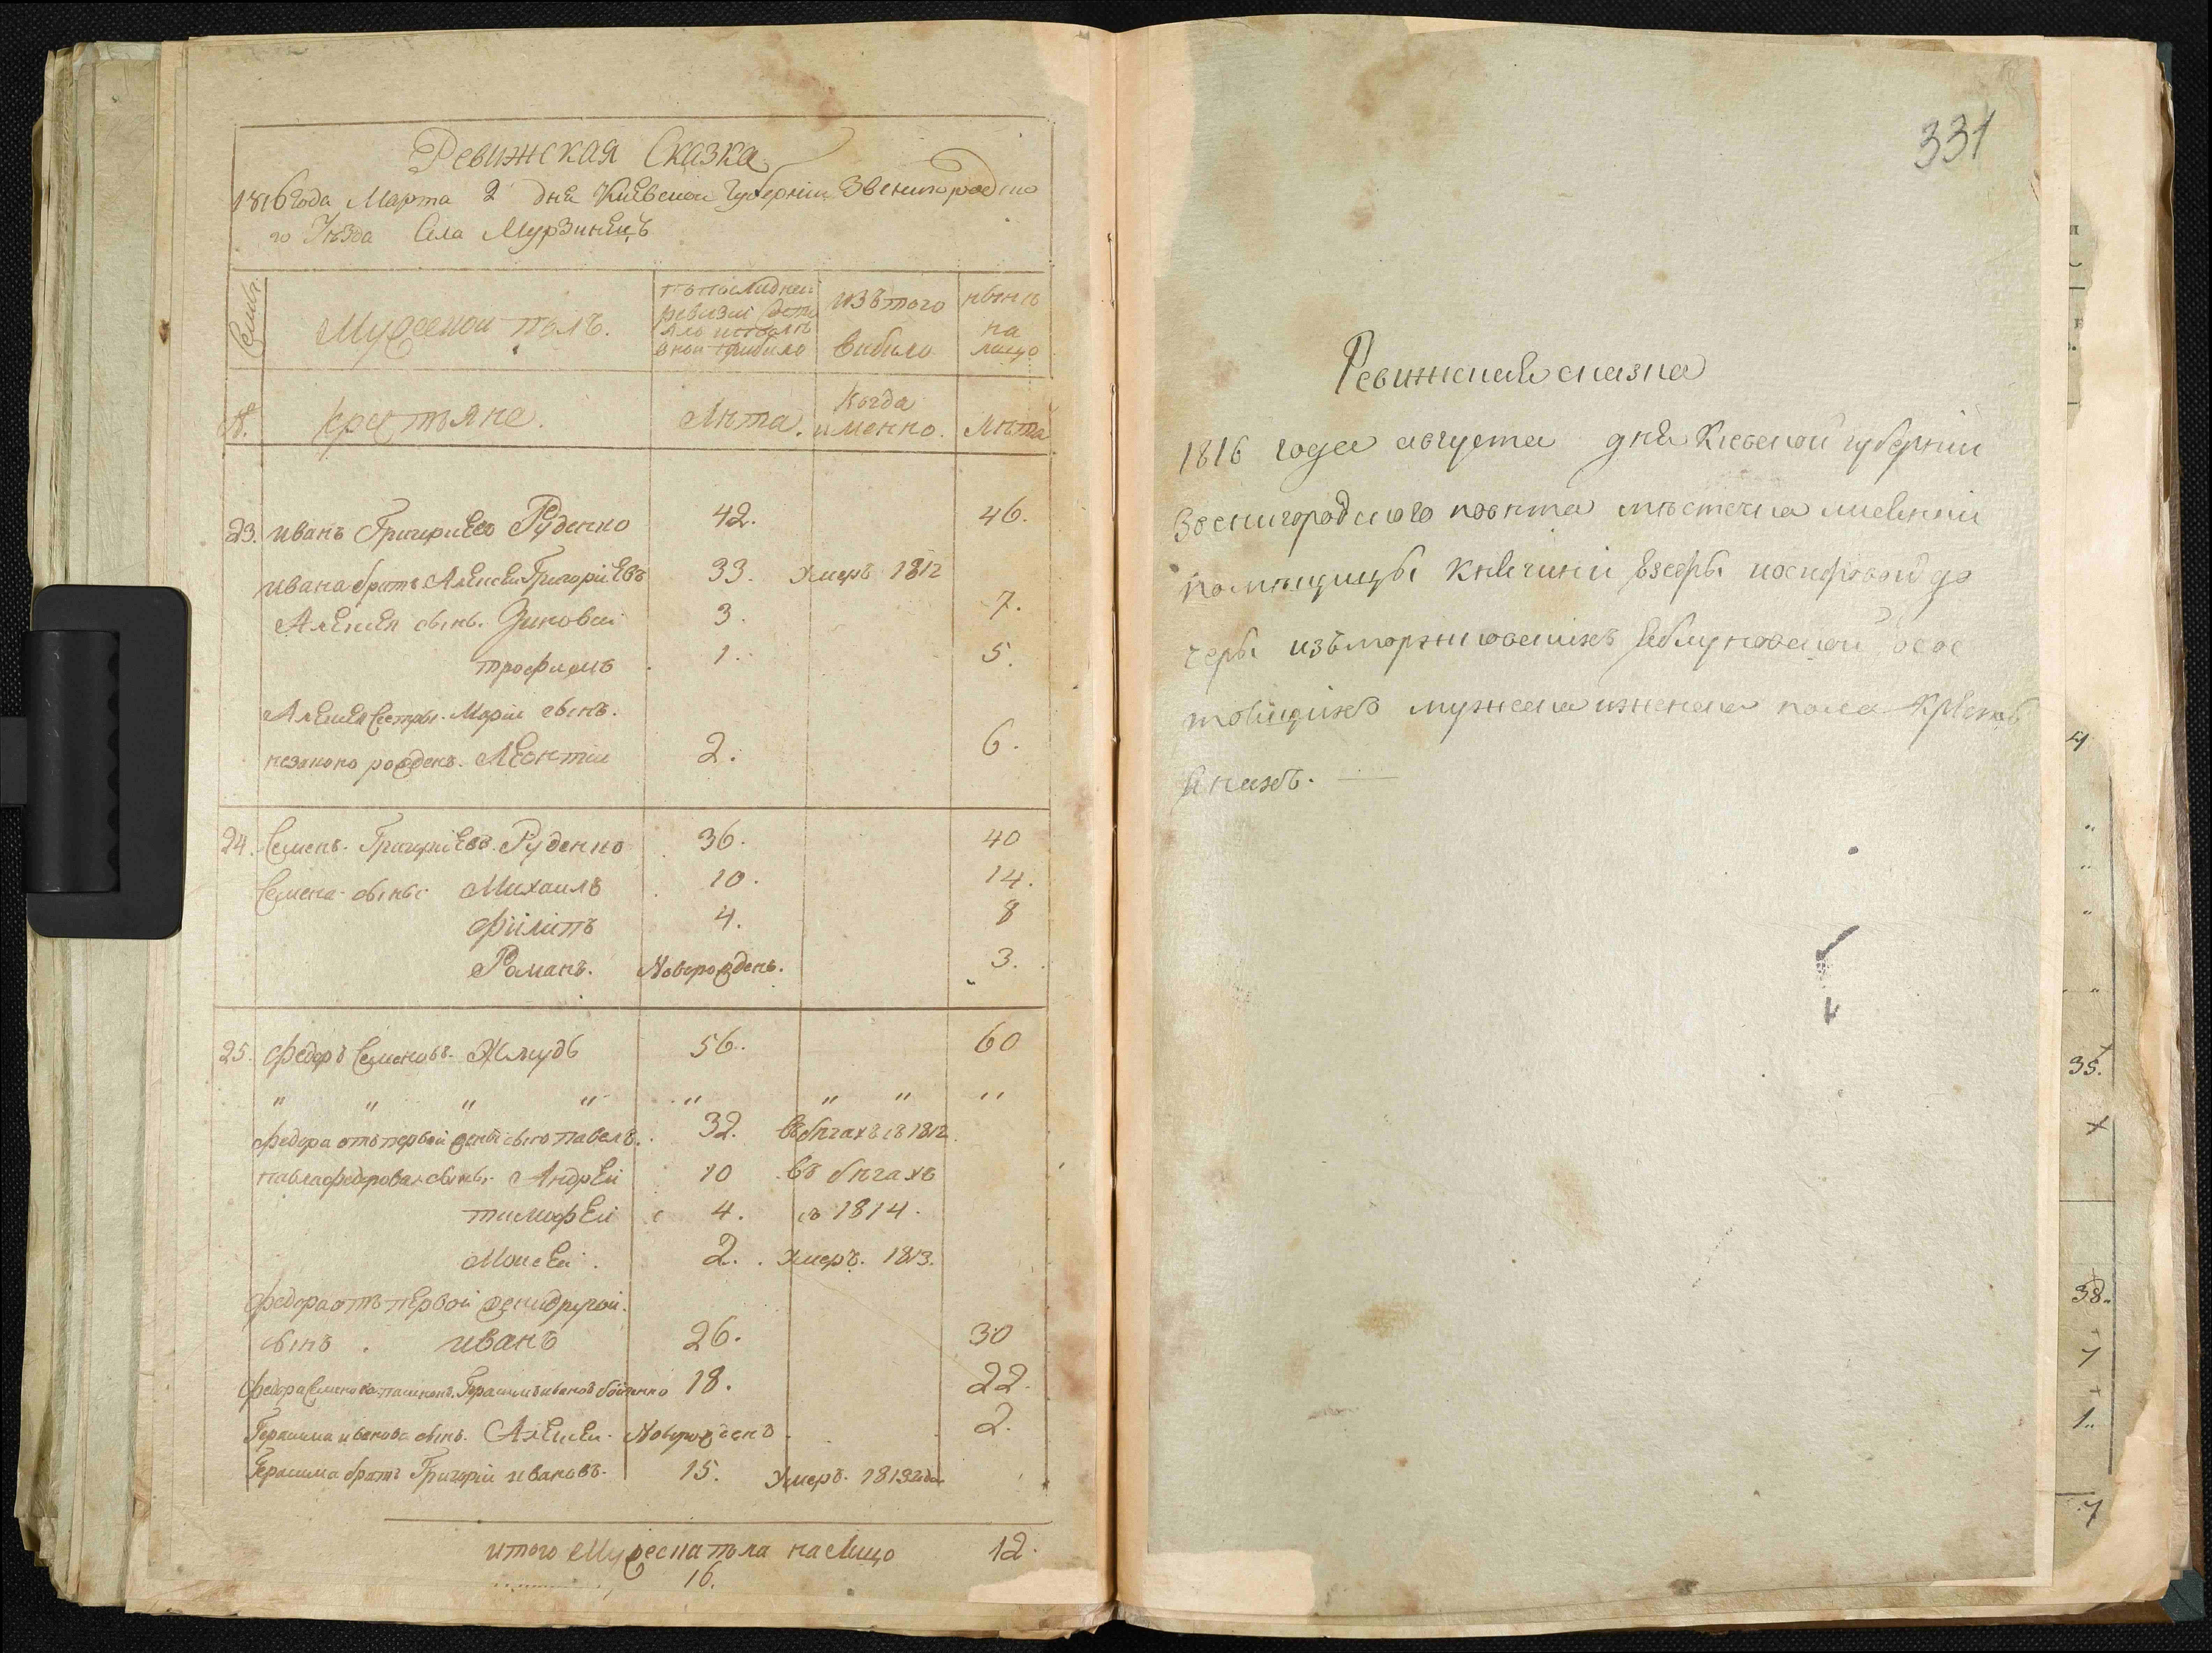 Ревижская Сказка
1816 года Марта 2 дня Киевской Губернии Звенигородско
го Уезда Села Мурзинецъ
Семьи
Мужеской полъ.
по последней
ревизии состо
яло и после
оной прибыло
изъ того
выбыло
ныне
на
лицо
№.
крестьяне.
Лета.
Когда
именно.
Лета
23. иванъ Григориевъ Руденко 42. 46.
ивана братъ Алексей Григориевъ 33. Умеръ 1812
Алексея сынъ. Зиновей 3. 7.
трофимъ 1. 5.
Алексея сестры. Марии сынъ.
незаконо рожденъ. Леонтии 2. 6.
24. Семенъ. Григориевъ. Руденко 36. 40
Семена сыны Михаилъ 10. 14.
Филипъ 4. 8
Романъ. Новорожденъ. 3.
25. Федоръ Семеновъ. Жмудь 56. 60
" " " " " " " "
Федора отъ первой жены сынъ павелъ. 32. въ бегахъ съ 1812
павла федорова сыны. Андрей 10 въ бегахъ
тимофей 4. съ 1814.
Моисей. 2. Умеръ. 1813.
Федора отъ первой жены другой.
сынъ. иванъ 26. 30
Федора Семенова Герасимъ ивановъ 18. 22.
Герасима иванова сынъ. Алексей. Новорожденъ 2.
Герасима братъ Григорий ивановъ. 15. Умеръ. 1813 года
итого Мужеска пола на Лицо 12.
16.
331
Ревижская сказка
1816 года августа дня Киевской губернии
Звенигородского повета местечка
помещицы княгини иосифовой до
чери изъ Яблуновской о сос
тоящихъ мужеска и женска пола крестья
янахъ.
35.
38.
7
1.